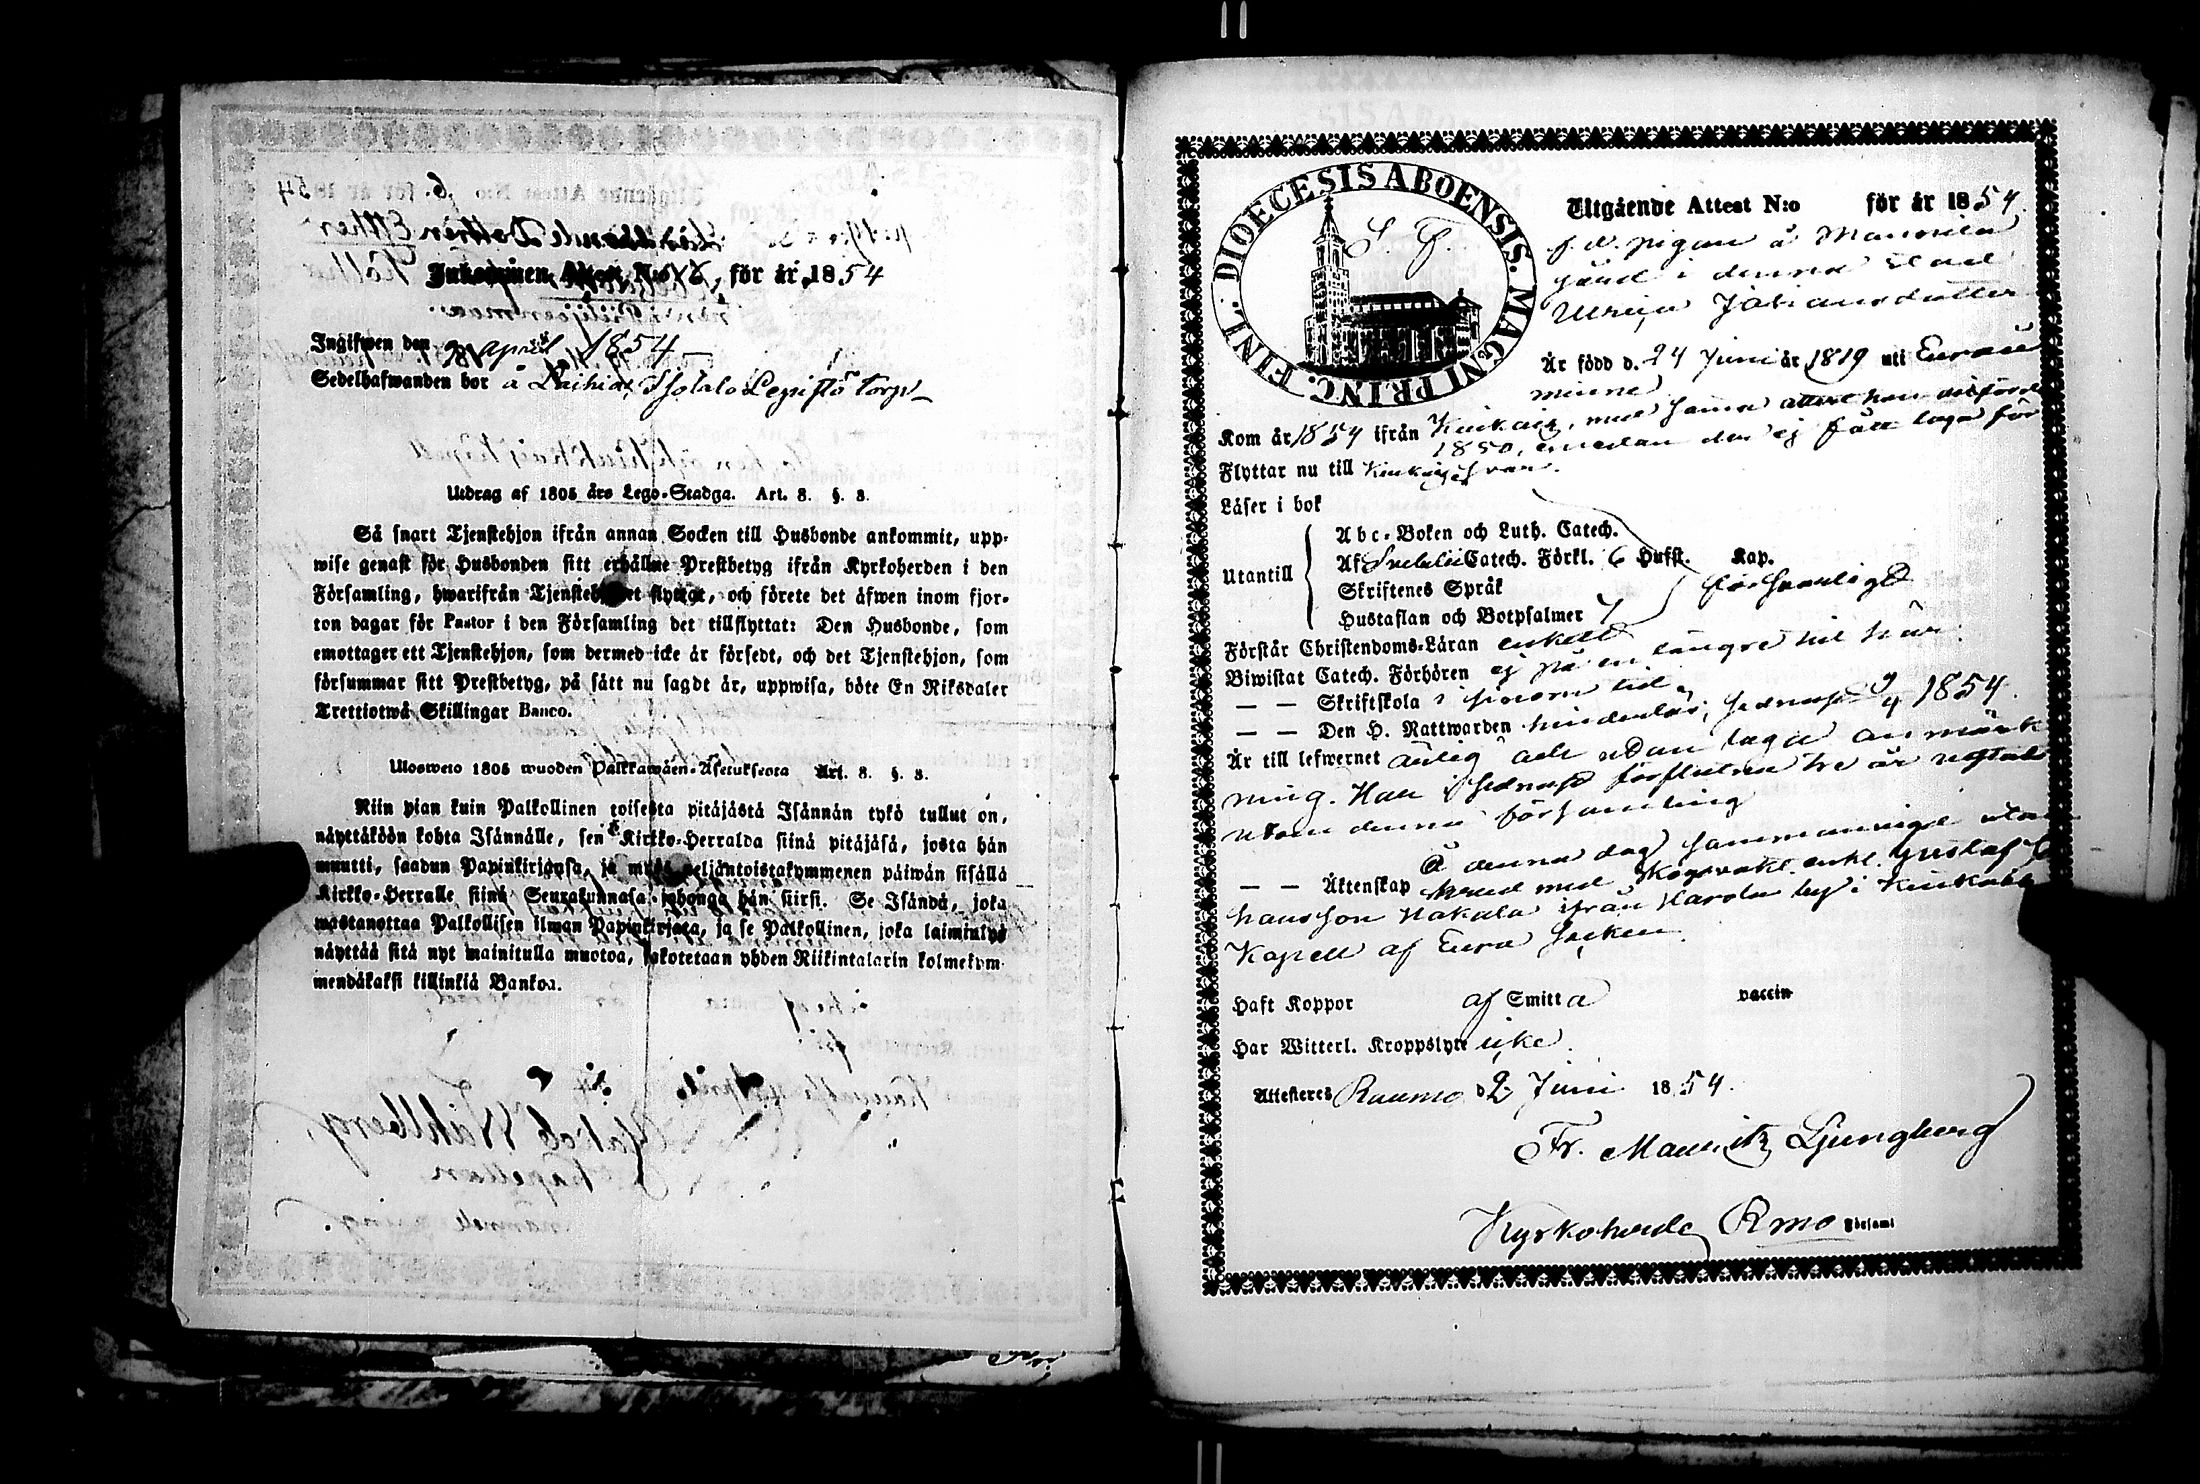 Inkommen Attest N:o 6, för år 1854
Ingifwen den 9 april 1854
Sedelhafwanden bor å Laihia, Isotalo Lepistö torp
Utdrag af 1805 års Lego-Stadga. Art. 8. §. 8.
Så snart Tjenstehjon ifrån annan Socken till Husbonde ankommit, upp-
wise genast för Husbonden sitt erhållne Prestbetyg ifrån Kyrkoherden i den
Församling, hwarifrån Tjenstehjonet flyttat, och förete det äfwen inom fjor-
ton dagar för Pastor i den Församling det tillflyttat: Den Husbonde, som
emottager ett Tjenstehjon, som dermed icke är försedt, och det Tjenstehjon, som
försummar sitt Prestbetyg, på sätt nu sagdt är, uppwisa, böte En Riksdaler
Trettiotwå Skillingar Banco.
Ulosweto 1805 wuoden Palkkawäen-Asetuksesta Art. 8. §. 8.
Niin pian kuin Palkollinen toisesta pitäjästä Isännän tykö tullut on,
näyttäköön kohta Isännälle, sen Kirkko-Herralda siinä pitäjäsä, josta hän
muutti, saadun Papinkirjansa, ja myös neljäntoistakymmenen päiwän sisällä
Kirkko-Herralle siinä Seurakunnasa johonga hän siirsi. Se Isändä, joka
wastanottaa Palkollisen ilman Papinkirjata, ja se Palkollinen, joka laiminlyö
näyttää sitä nyt mainitulla muotoa, sakotetaan yhden Riikintalarin kolmekym-
mendäkaksi killinkiä Bankoa.
DIOECESIS ABOENSIS. MAGNI PRINC. FINL.
S. F.
Utgående Attest N:o för år 1854.
f. d. pigan å Mannila
gård i denna Stad
Ulrica Johansdotter
Är född d. 24 Juni år 1819 uti Eura
minne
Kom år 1854 ifrån Kiukais, med samma attest hon
1850, emedan den ej fått laga för
Flyttar nu till Kiukais
Läser i bok
Utantill
Abc-Boken och Luth. Catech.
Af Svebelii Catech. Förkl. 6 Hufst. Kap.
Skriftenes Språk
Hustaflan och Botpsalmer 7
försvarligt
Förstår Christendoms-Läran enkelt
Biwistat Catech. Förhören ej på en längre tid här
— — Skriftskola i sinom tid
— — Den H. Nattwarden hinderlös, sednast 9/4 1854.
Är till lefwernet ärlig och utan laga anmärk
ning. Har i sednast förflutna tre år vistats
utom denna församling
Å denna dag sammanvigd
— — Äktenskap med enkl. Gustaf Jo
hansson Hakala ifrån Harola by i Kiukais
Kapell af Eura Socken.
Haft Koppor af Smitta vaccin
Har Witterl. Kroppslyte icke.
Attesteras Raumo d 2 Juni 1854.
Fr. Mauritz Ljungberg
Kyrkoherde Rmo Församl